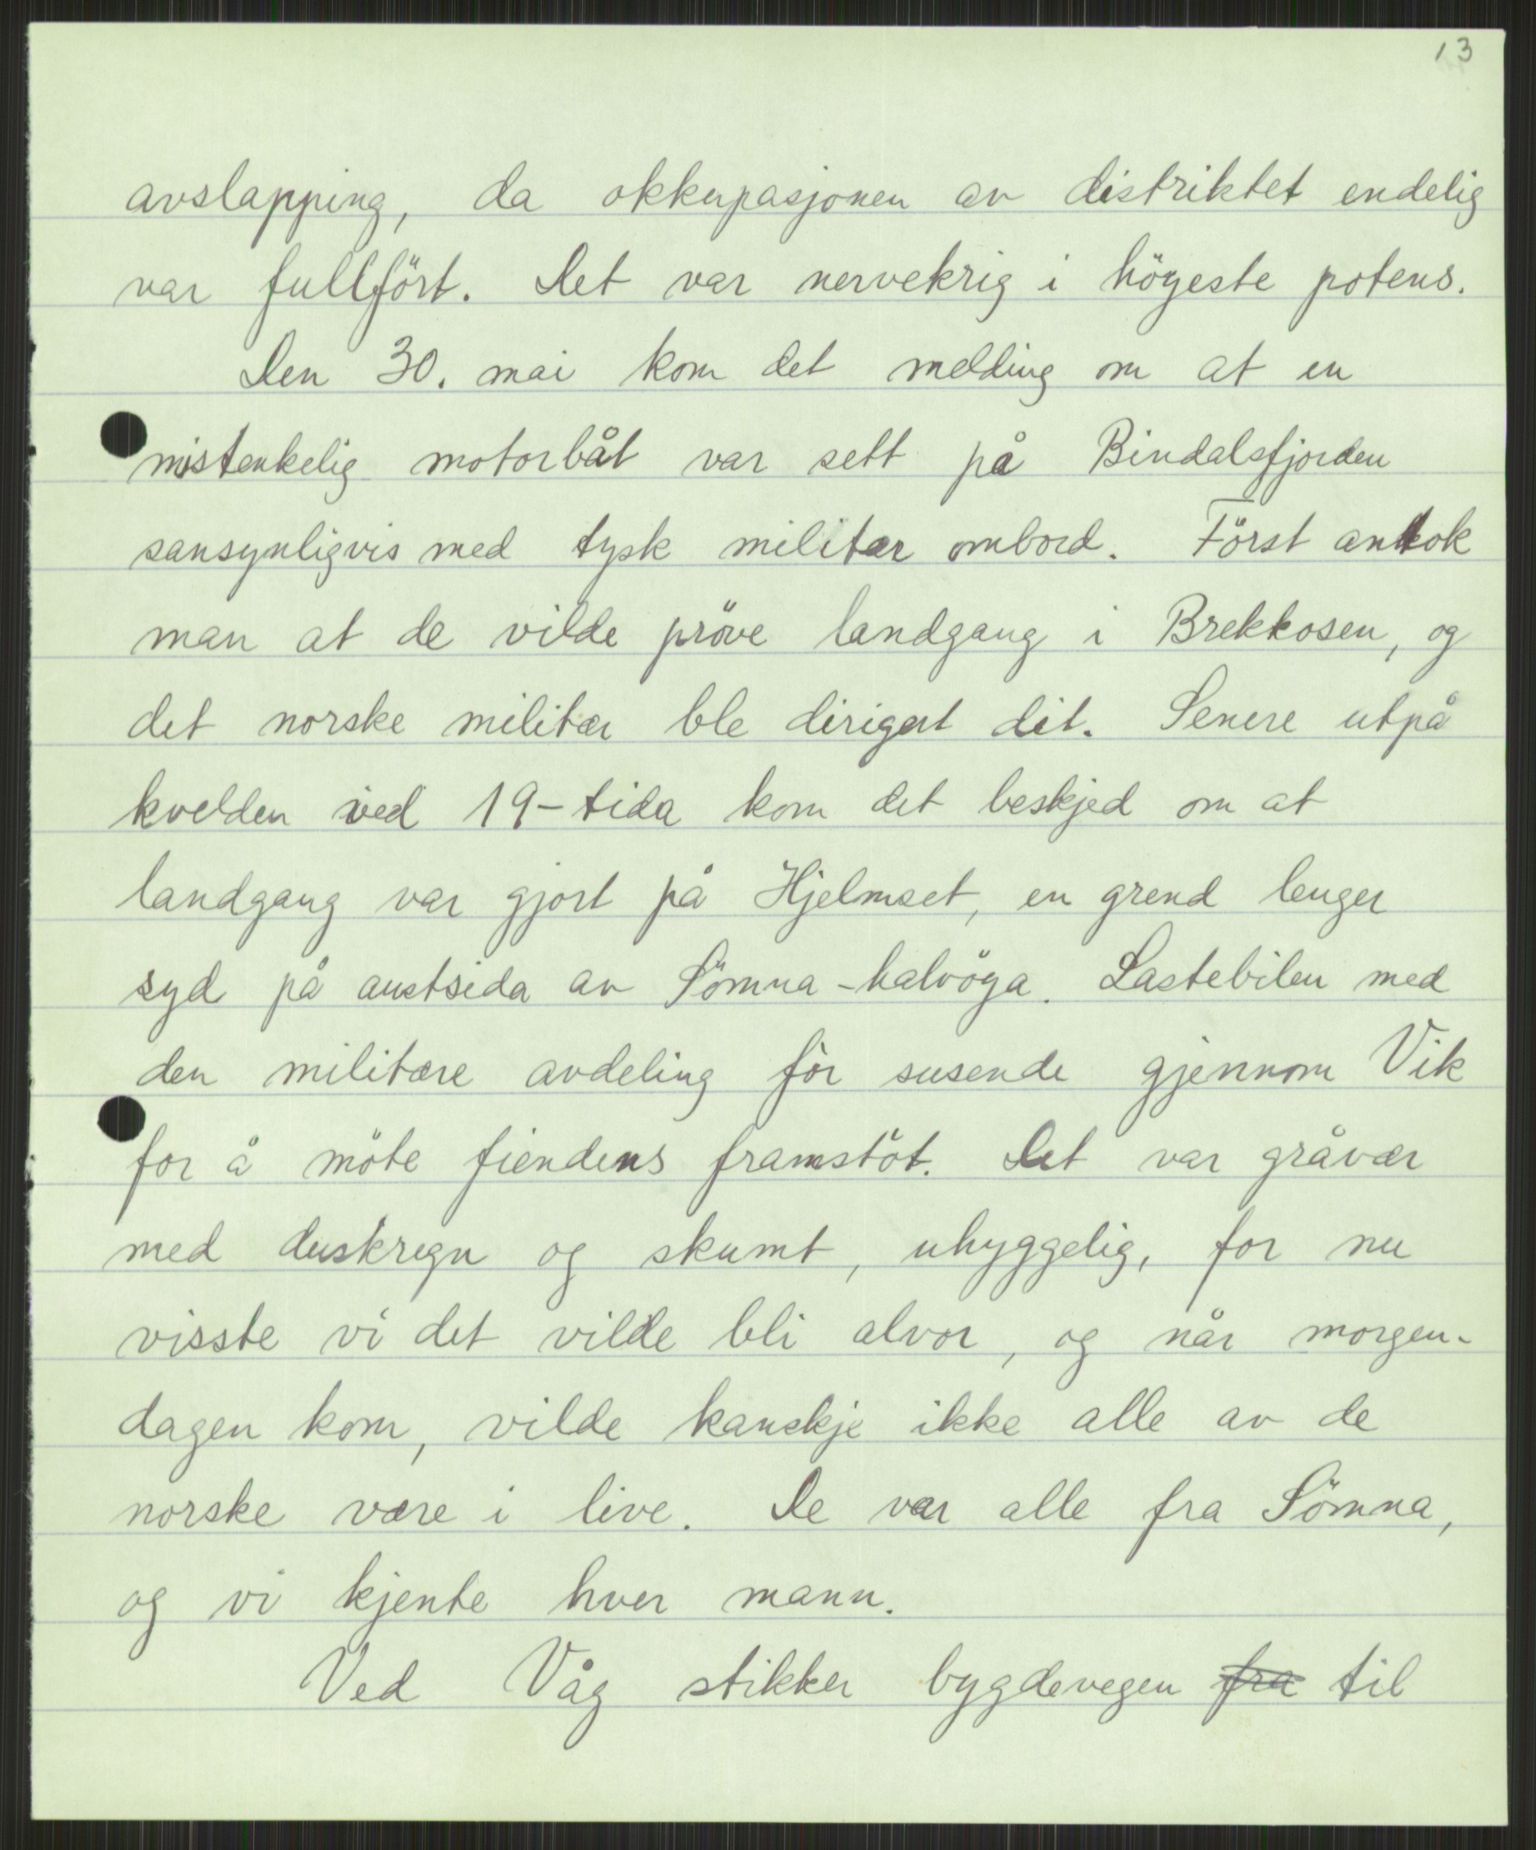 13
avslapping, da okkupasjonen av distriktet endelig
var fullfört. Det var nervekrig i högeste potens.
Den 30. mai kom det melding om at en
mistenkelig motorbåt var sett på Bindalsfjorden
sansynligvis med tysk militær ombord. Först antok
man at de vilde pröve landgang i Brekkosen, og
det norske militær ble dirigert dit. Senere utpå
kvelden ved 19-tida kom det beskjed om at
landgang var gjort på Hjelmset, en grend lenger
syd på austsida av Sömna-halvöya. Lastebilen med
den militære avdeling fór susende gjennom Vik
for å möte fiendens framstöt. Det var gråvær
med duskregn og skumt, uhyggelig, for nu
visste vi det vilde bli alvor, og når morgen-
dagen kom, vilde kanskje ikke alle av de
norske være i live. De var alle fra Sömna,
og vi kjente hver mann.
Ved Våg stikker bygdevegen fra til